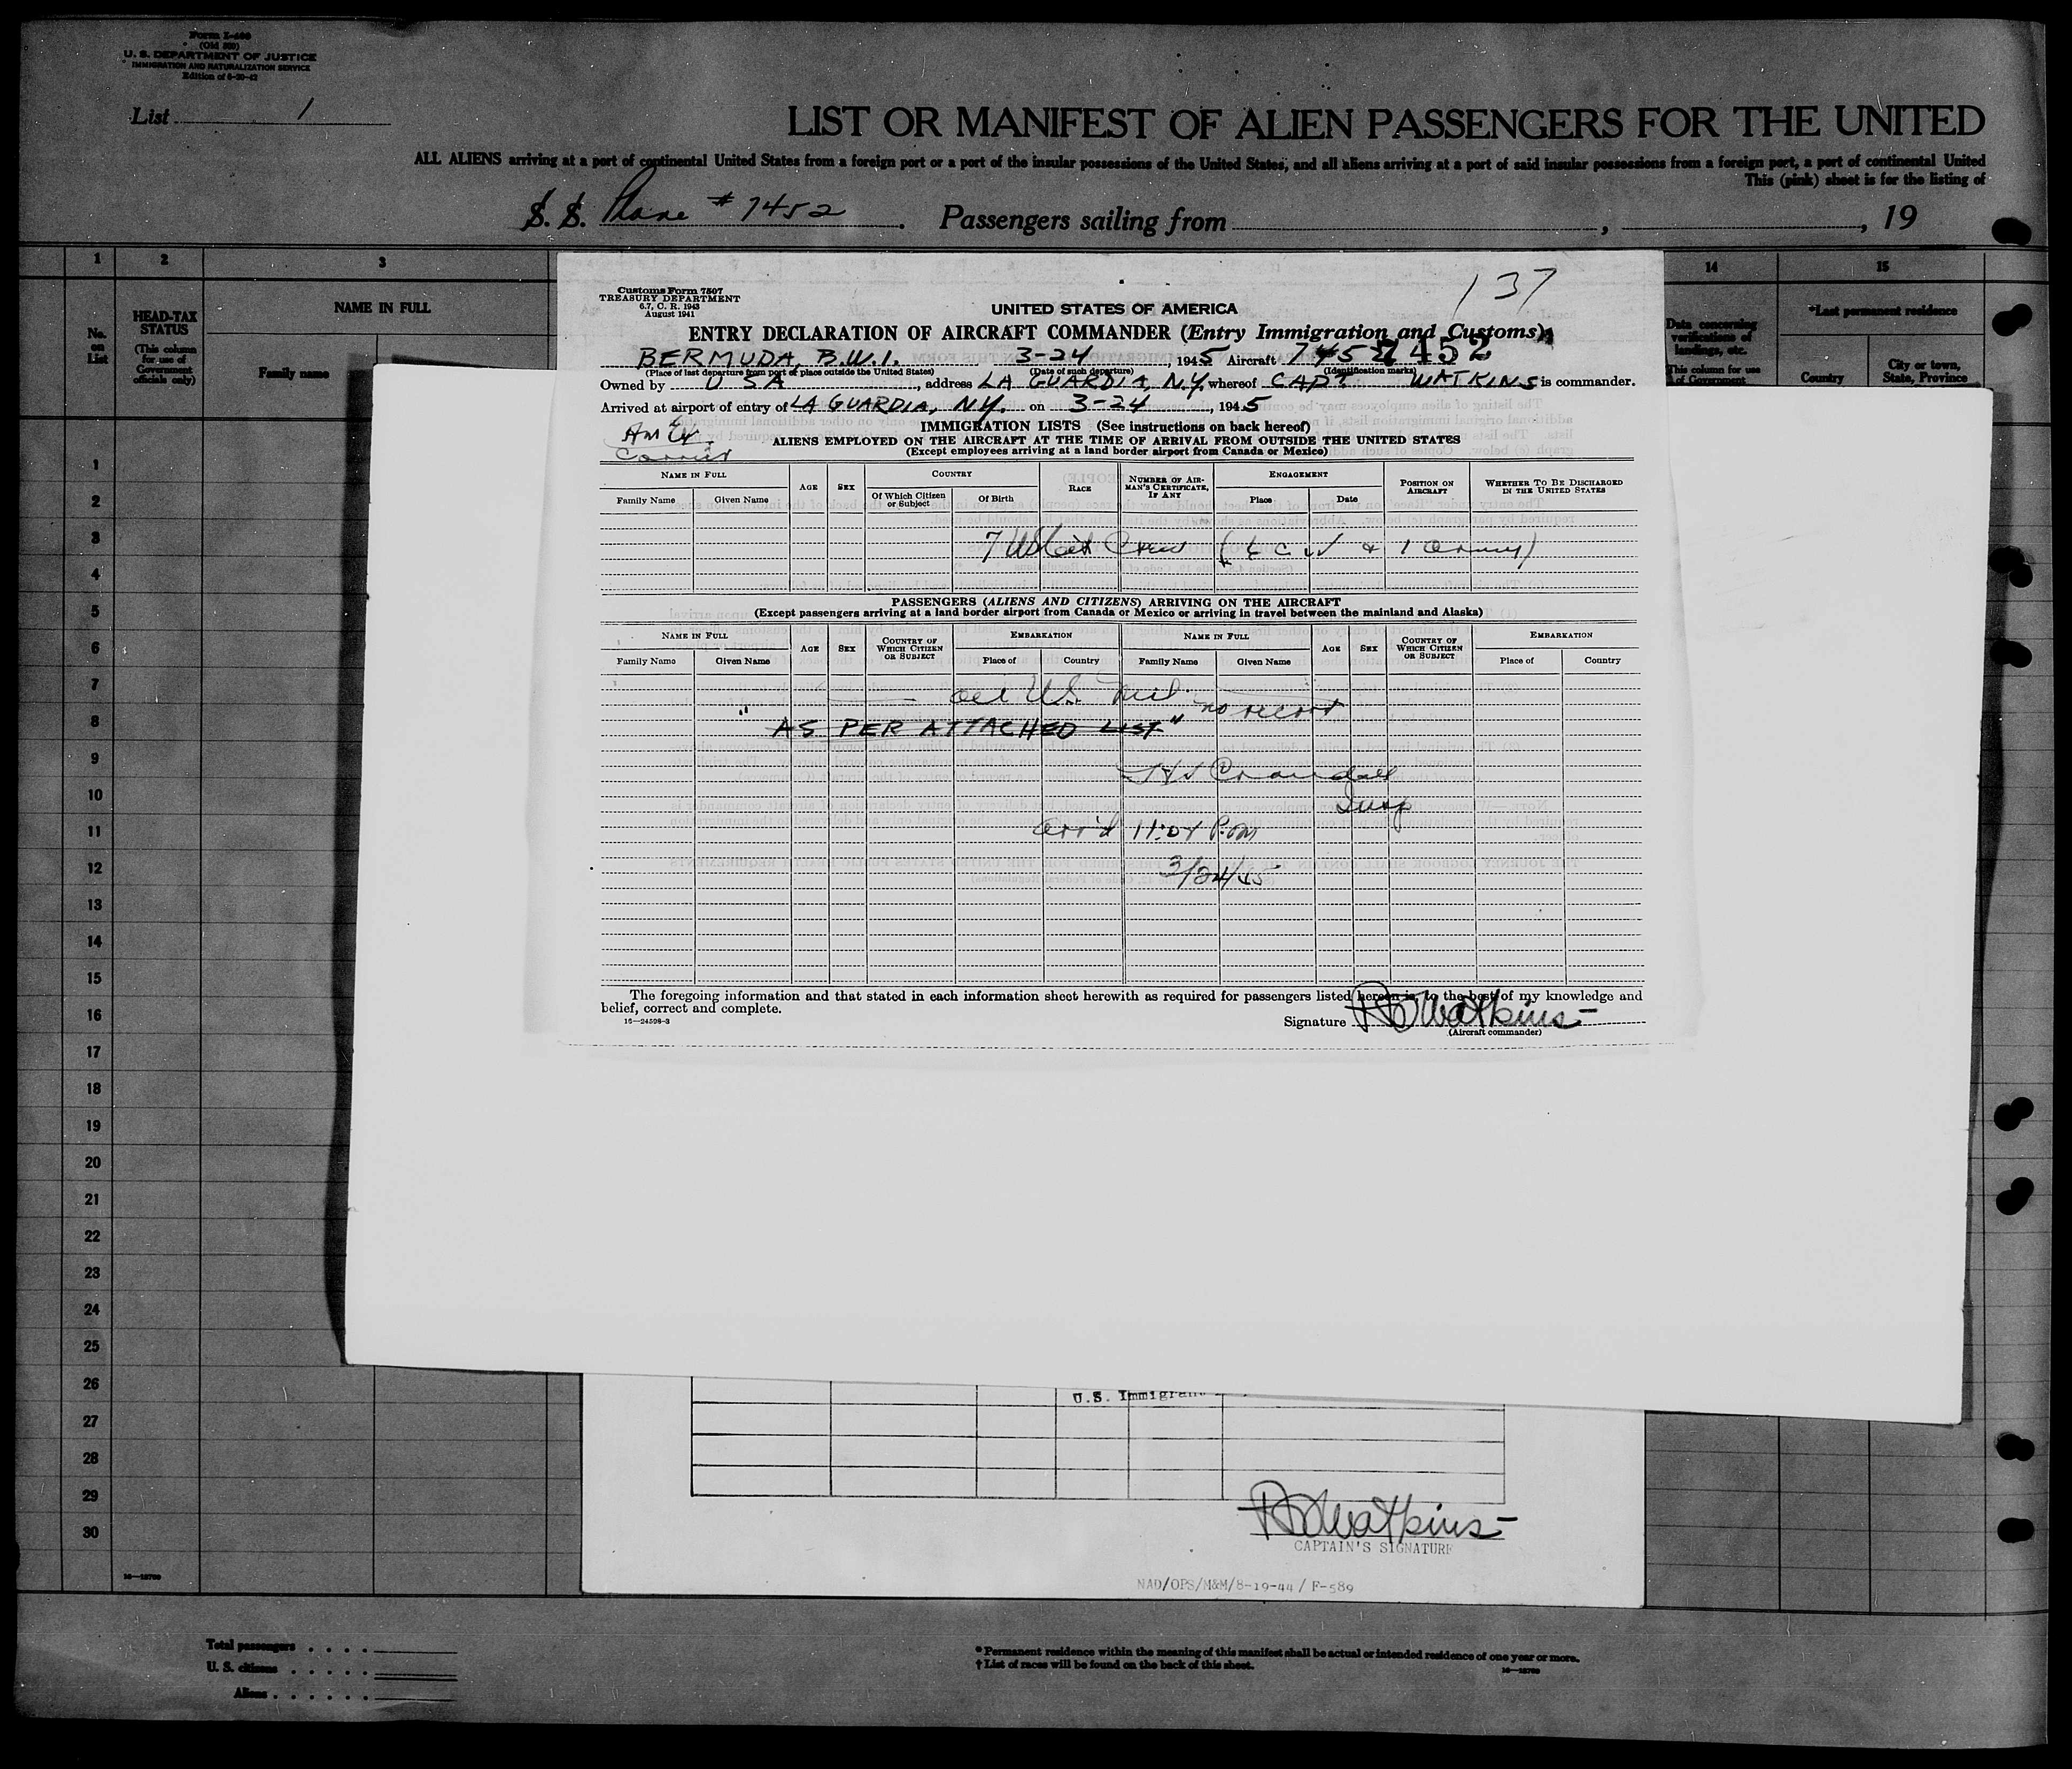 Form I-400
(Old 500)
U. S. DEPARTMENT OF JUSTICE
IMMIGRATION AND NATURALIZATION SERVICE
Edition of 6-30-43
List 1
LIST OR MANIFEST OF ALIEN PASSENGERS FOR THE UNITED
ALL ALIENS arriving at a port of continental United States from a foreign port or a port of the insular possessions of the United States, and all aliens arriving at a port of said insular possessions from a foreign port, a port of continental United
This (pink) sheet is for the listing of
S. S. Plane # 7452. Passengers sailing from , , 19
1 2 3 14 15
No. on List
HEAD-TAX STATUS
(This column for use of Government officials only)
NAME IN FULL
Family name
Data concerning verifications of landings, etc.
This column for use of Government
*Last permanent residence
Country
City or town, State, Province
Customs Form 7507
TREASURY DEPARTMENT
6.7, C. R. 1943
August 1941
137
UNITED STATES OF AMERICA
ENTRY DECLARATION OF AIRCRAFT COMMANDER (Entry Immigration and Customs)
BERMUDA, B.W.I. 3-24, 1945 Aircraft 7452 7452
(Place of last departure from port or place outside the United States) (Date of such departure) (Identification marks)
Owned by USA, address LA GUARDIA, N.Y. whereof CAPT WATKINS is commander.
Arrived at airport of entry of LA GUARDIA, N.Y. on 3-24, 1945
IMMIGRATION LISTS (See instructions on back hereof)
ALIENS EMPLOYED ON THE AIRCRAFT AT THE TIME OF ARRIVAL FROM OUTSIDE THE UNITED STATES
(Except employees arriving at a land border airport from Canada or Mexico)
NAME IN FULL AGE SEX COUNTRY RACE NUMBER OF AIRMAN'S CERTIFICATE, IF ANY ENGAGEMENT POSITION ON AIRCRAFT WHETHER TO BE DISCHARGED IN THE UNITED STATES
Family Name Given Name Of Which Citizen or Subject Of Birth Place Date
7 US Cit Crew
PASSENGERS (ALIENS AND CITIZENS) ARRIVING ON THE AIRCRAFT
(Except passengers arriving at a land border airport from Canada or Mexico or arriving in travel between the mainland and Alaska)
NAME IN FULL AGE SEX COUNTRY OF WHICH CITIZEN OR SUBJECT EMBARKATION NAME IN FULL AGE SEX COUNTRY OF WHICH CITIZEN OR SUBJECT EMBARKATION
Family Name Given Name Place of Country Family Name Given Name Place of Country
all U.S. Mil.
no record
"AS PER ATTACHED LIST"
Crandall
Insp
Arr'd 11:04 P.M
3/24/45
The foregoing information and that stated in each information sheet herewith as required for passengers listed hereon is, to the best of my knowledge and
belief, correct and complete.
16—24598-3
Signature Watkins
(Aircraft commander)
1
2
3
4
5
6
7
8
9
10
11
12
13
14
15
16
17
18
19
20
21
22
23
24
25
26
27
28
29
30
U.S. Immigrant
Watkins
CAPTAIN'S SIGNATURE
NAD/OPS/M&M/8-19-44 / F-589
Total passengers
U. S. citizens
Aliens
* Permanent residence within the meaning of this manifest shall be actual or intended residence of one year or more.
† List of races will be found on the back of this sheet.